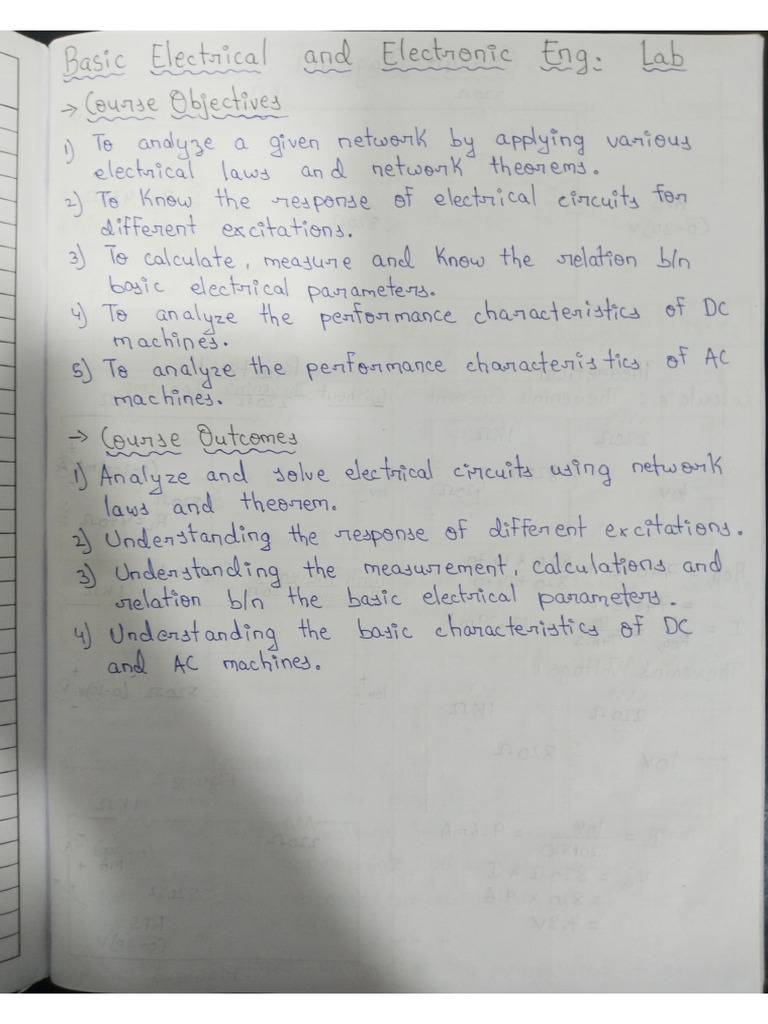 Basic Electrical and Electronic Eng. Lab
→ Course Objectives
1) To analyze a given network by applying various
electrical laws and network theorems.
2) To Know the response of electrical circuits for
different excitations.
3) To calculate, measure and Know the relation b/n
basic electrical parameters.
4) To analyze the performance characteristics of DC
machines.
5) To analyze the performance characteristics of AC
machines.
→ Course Outcomes
1) Analyze and solve electrical circuits using network
laws and theorem.
2) Understanding the response of different excitations.
3) Understanding the measurement, calculations and
relation b/n the basic electrical parameters.
4) Understanding the basic characteristics of DC
and AC machines.